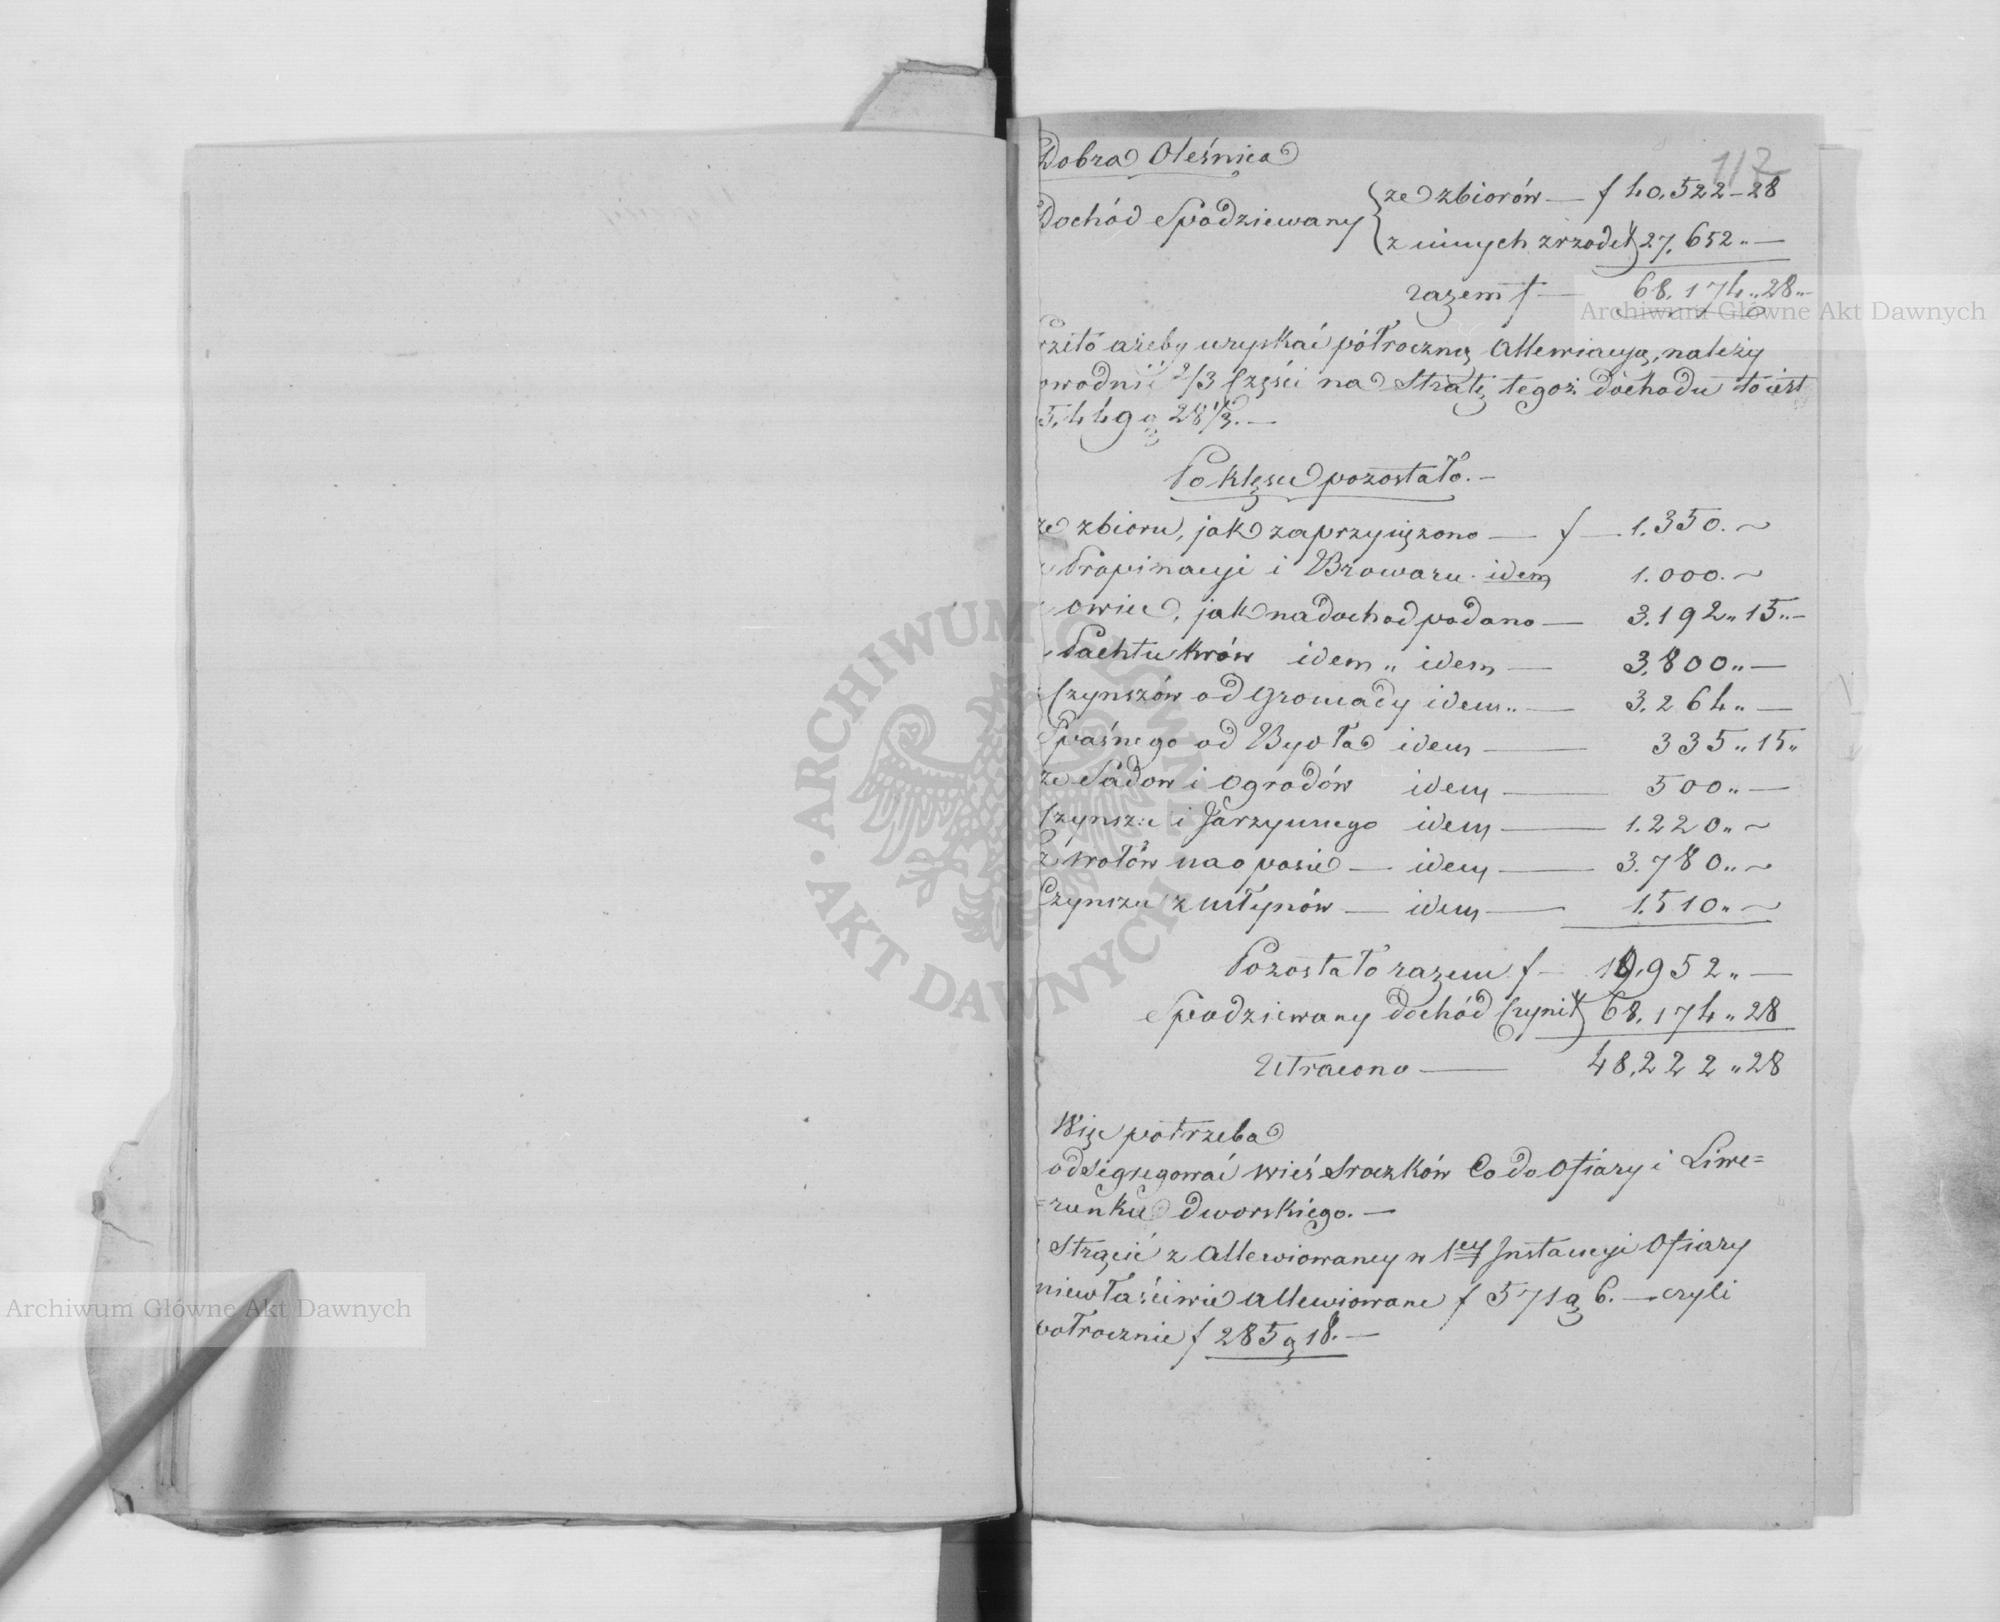 112
Dobra Oleśnica
Dochód Spodziewany { ze zbiorów — f 40,522 – 28
z innych zrzodeł 27,652 „ —
razem f — 68,174 „ 28 „
ażeby uzyskać półroczną Allewiacyą, należy
owodnić 2/3 Części na Stratę tegoż dochodu to iest
5,449 g 28 1/3. —
Po klęsce pozostało. —
ze zbioru, jak zaprzysiężono — f — 1.350. ~
Propinacyi i Browaru. idem 1.000. ~
owiec, jak na dochod podano — 3.192 „ 15 „ —
Pachtu krów idem „ idem — 3,800 „ —
Czynszów od Gromady idem „ — 3.264 „ —
Spaśnego od Bydła idem — 335 „ 15 „
ze Sadow i Ogrodów idem — 500 „ —
Czynszu i Jarzynnego idem — 1.220 „ ~
z wołów na opasie — idem — 3.780 „ ~
Czynszu z młynów — idem — 1.510 „ ~
Pozostało razem f — 19,952 „ —
Spodziewany dochód Czynił 68,174 „ 28
Utracono — 48,222 „ 28
Więc potrzeba
odsegregować wieś Sroczków Co do Ofiary i Liwe=
=runku dworskiego. —
Strącić z Allewiowaney w 1ey Instancyi Ofiary
niewłaściwie allewiowane f 571 g 6. — czyli
połrocznie f 285 g 18. —
Archiwum Główne Akt Dawnych
Archiwum Główne Akt Dawnych
ARCHIWUM GŁÓWNE · AKT DAWNYCH